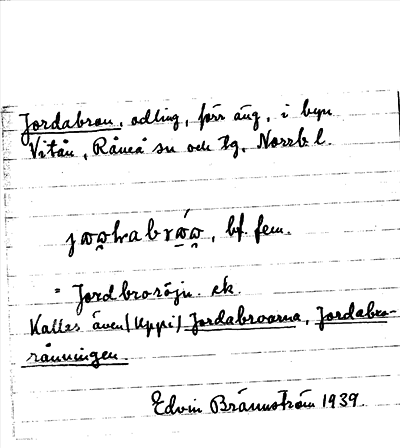 Jordabron, odling, förr äng, i byn
Vitån, Råneå sn och tg, Norrb. l.
bf. fem.
= Jordbroröjn. ek.
Kallas även (Uppi) Jordabroarna, Jordabro-
ränningen.
Edvin Brännström 1939.